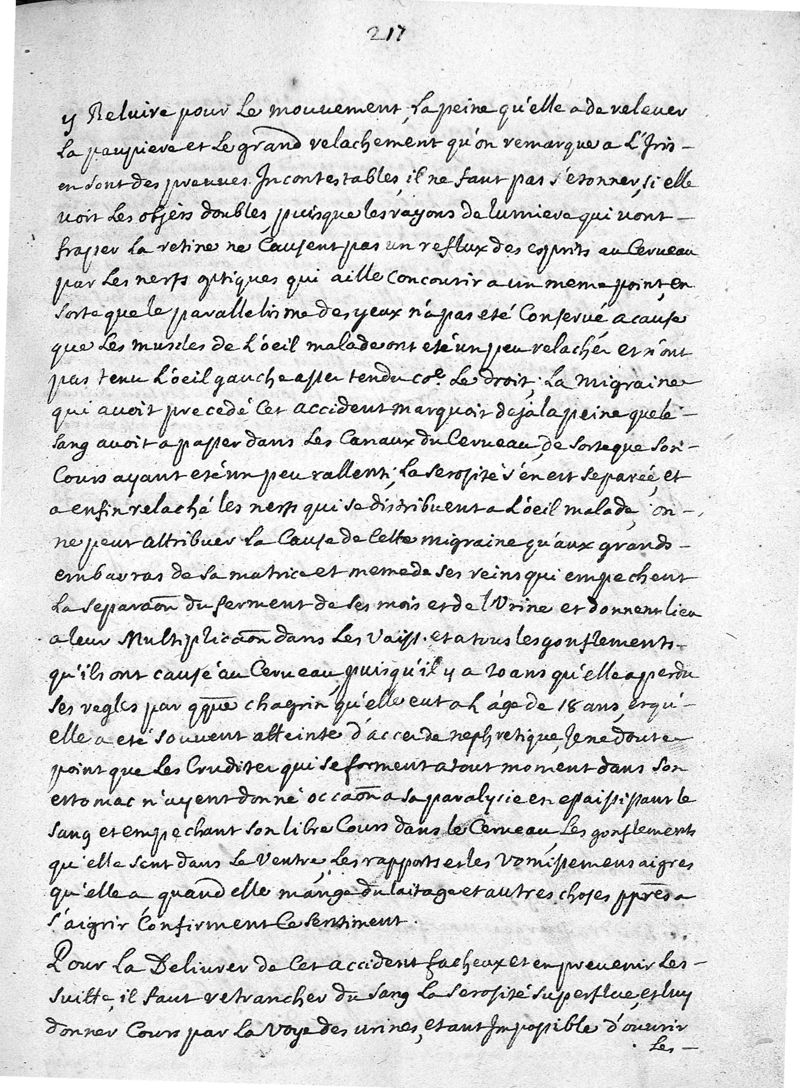 217
y Reluire pour Le mouuement, La peine qu'elle a de releuer
La paupiere et Le grand relachement qu'on remarque a L'Iris –
en sont des preuues Incontestables, il ne faut pas s'etonner, si elle
voit Les objets doubles puisque les rayons de lumiere qui vont –
fraper La retine ne Causent pas un reflux des esprits au Cerueau
par Les nerfs optiques qui aille Concourir a un meme point, en
sorte que le parallelisme des yeux n'a pas eté Conservé a cause
que Les muscles de L'oeil malade ont eté un peu relachés et n'ont
pas tenu L'oeil gauche assez tendu coe. Le droit, La Migraine
qui auoit precedé Cet accident marquoit deja la peine que le
sang auoit a passer dans Les Canaux du Cerueau, de sorte que son –
Cours ayant eté un peu rallenti, La serosité s'en est separée, et
a enfin relaché les nerfs qui se distribuent a L'oeil malade, on –
ne peut attribuer La Cause de Cette migraine qu'aux grands –
embarras de sa matrice et meme de ses reins qui empechent
La separaõn du ferment de ses mois et de l'Vrine et donnent lieu
a leur Multiplicaõn dans Les Vaiss. et a tous les gonflements –
qu'ils ont causé au Cerueau, puisqu'il y a 20 ans qu'elle a perdu
ses regles par qque chagrin qu'elle eut a L'âge de 18 ans, et qu'–
elle a eté souuent atteinte d'acces de nephretique, Je ne doute
point que Les Crudites qui se forment a tout moment dans son
estomac n'ayent donné occaõn a sa paralysie en epaississant le
sang et empechant son libre Cours dans le Cerueau Les gonflements
qu'elle sent dans Le Ventre, Les rapports et les Vomissemens aigres
qu'elle a quand elle mange du laitage et autres choses ppres a
s'aigrir Confirment Ce sentiment.
Pour La Deliurer de Cet accident facheux et en preuenir Les –
suitte, il faut retrancher du sang La serosité superflue, et luy
donner Cours par La Voye des urines, etant Impossible d'ouurir
Les –